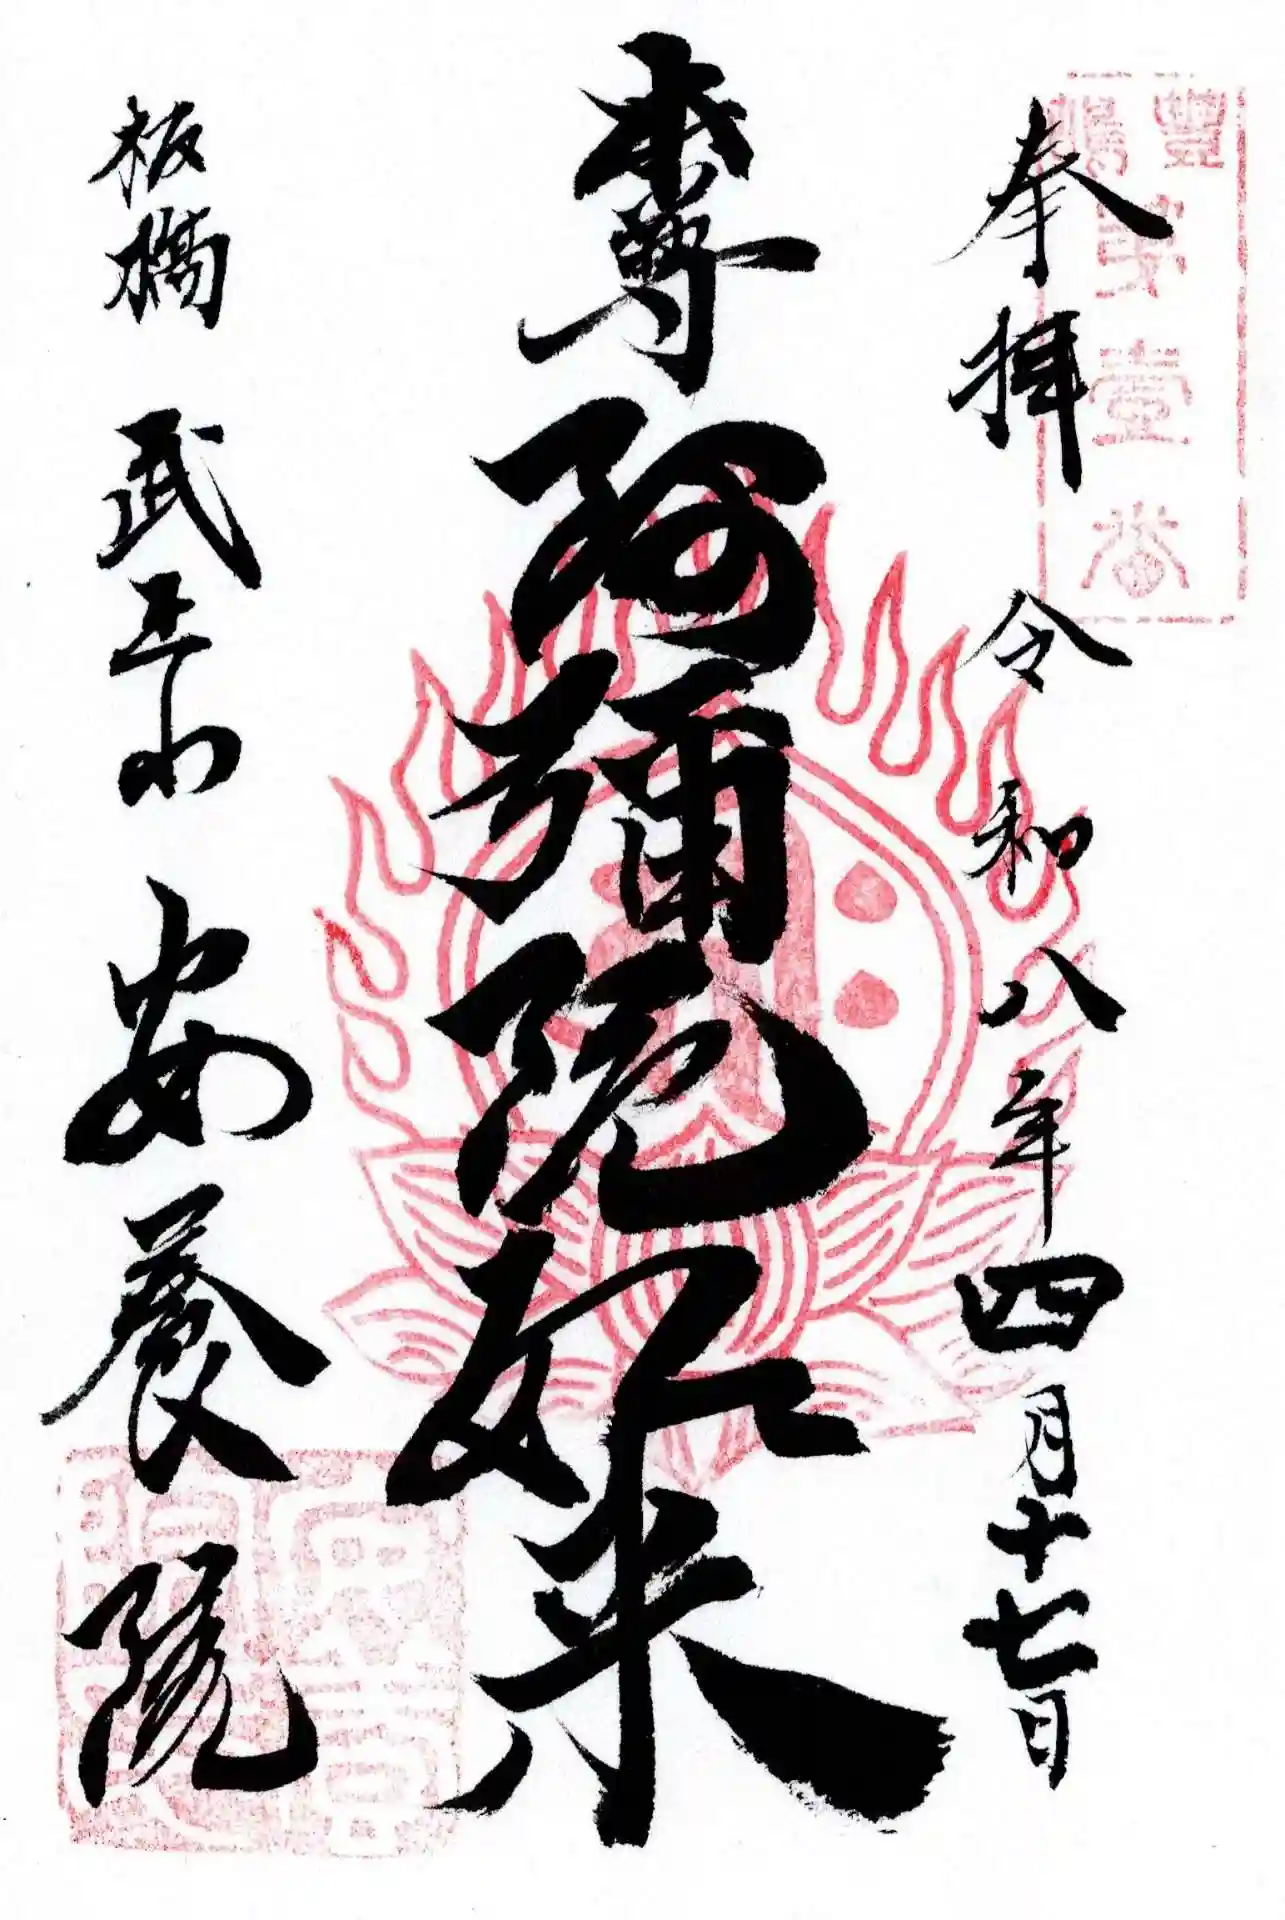 豐嶋
第壹番
奉拝 令和八年四月十七日
本尊 阿彌陀如来
板橋 武王山 安養院